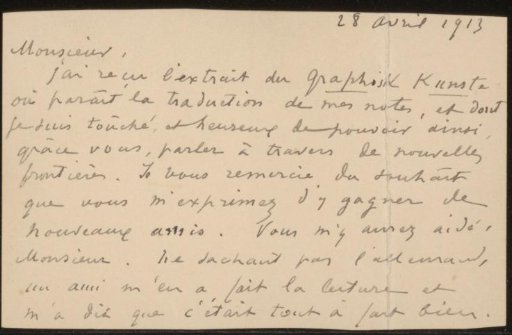 28 avril 1913
Monsieur,
J'ai reçu l'extrait du Graphisk Kunste
où paraît la traduction de mes notes, et dont
je suis touché, et heureux de pouvoir ainsi,
grâce vous, parler à travers de nouvelles
frontières. Je vous remercie du souhait
que vous m'exprimez d'y gagner de
nouveaux amis. Vous m'y aurez aidé,
Monsieur. Ne sachant pas l'allemand,
un ami m'en a fait la lecture et
m'a dit que c'était tout à fait bien.